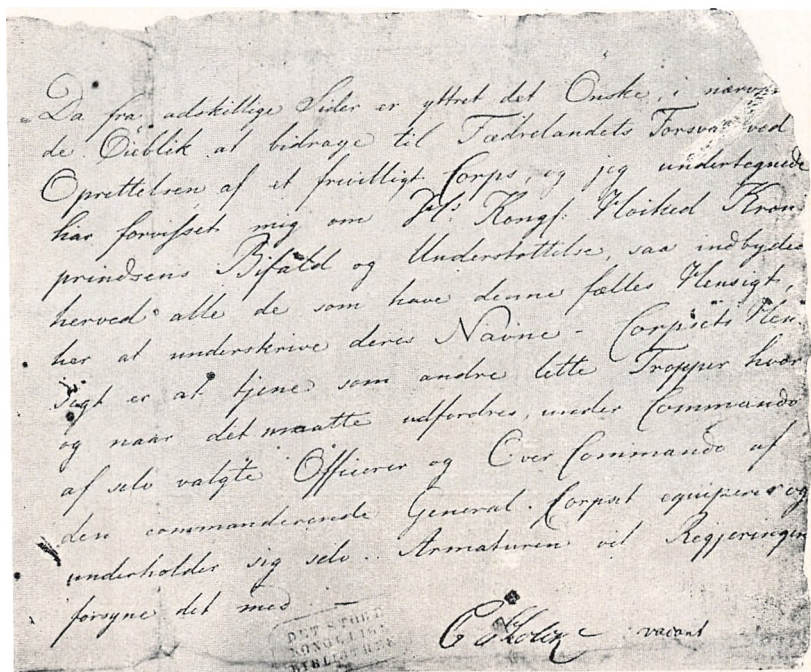 Da fra adskillige Sider er yttret det Önske, i nærv
de Öieblik at bidrage til Fædrelandets Forsvar ved
Oprettelsen af et frivilligt Corps, og jeg undertegnede
har forvisset mig om Kongl. Høihed Kron
prindsens Bifald og Understøttelse, saa indbydes
herved alle de som have denne fælles Hensigt,
her at underskrive deres Navne - Corpsets Hen
sigt er at tjene som andre lette Tropper hvor
og naar det maatte udfordres under Commando
af selv valgte Officerer og Over Commando af
den commanderende General. Corpset equiperer og
underholder sig selv. Armaturen vil Regjeringen
forsyne det med
DET STORE
KONGELIGE
BIBLIOTHEK